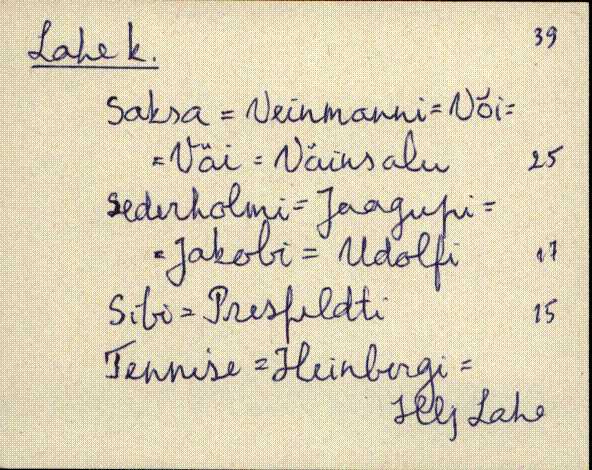 Lahe k. 39
Saksa = Veinmanni = Või =
= Väi = Väinsalu 25
Sederholmi = Jaagupi =
= Jakobi = Udolfi 17
Sibi = Presfeldti 15
Tennise = Heinbergi =
Lahe